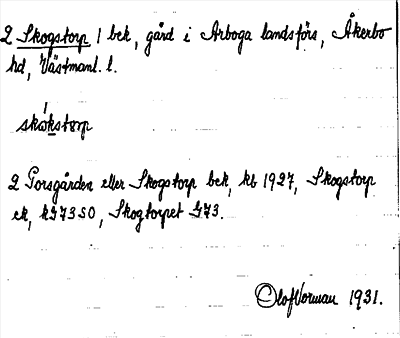 2 Skogstorp 1 bek, gård i Arboga landsförs, Åkerbo
hd, Västmanl. l.
skókstorp
2 Porsgården eller Skogstorp bek, kb 1927, Skogstorp
ek, Skogtorpet G73.
Olof Norman 1931.